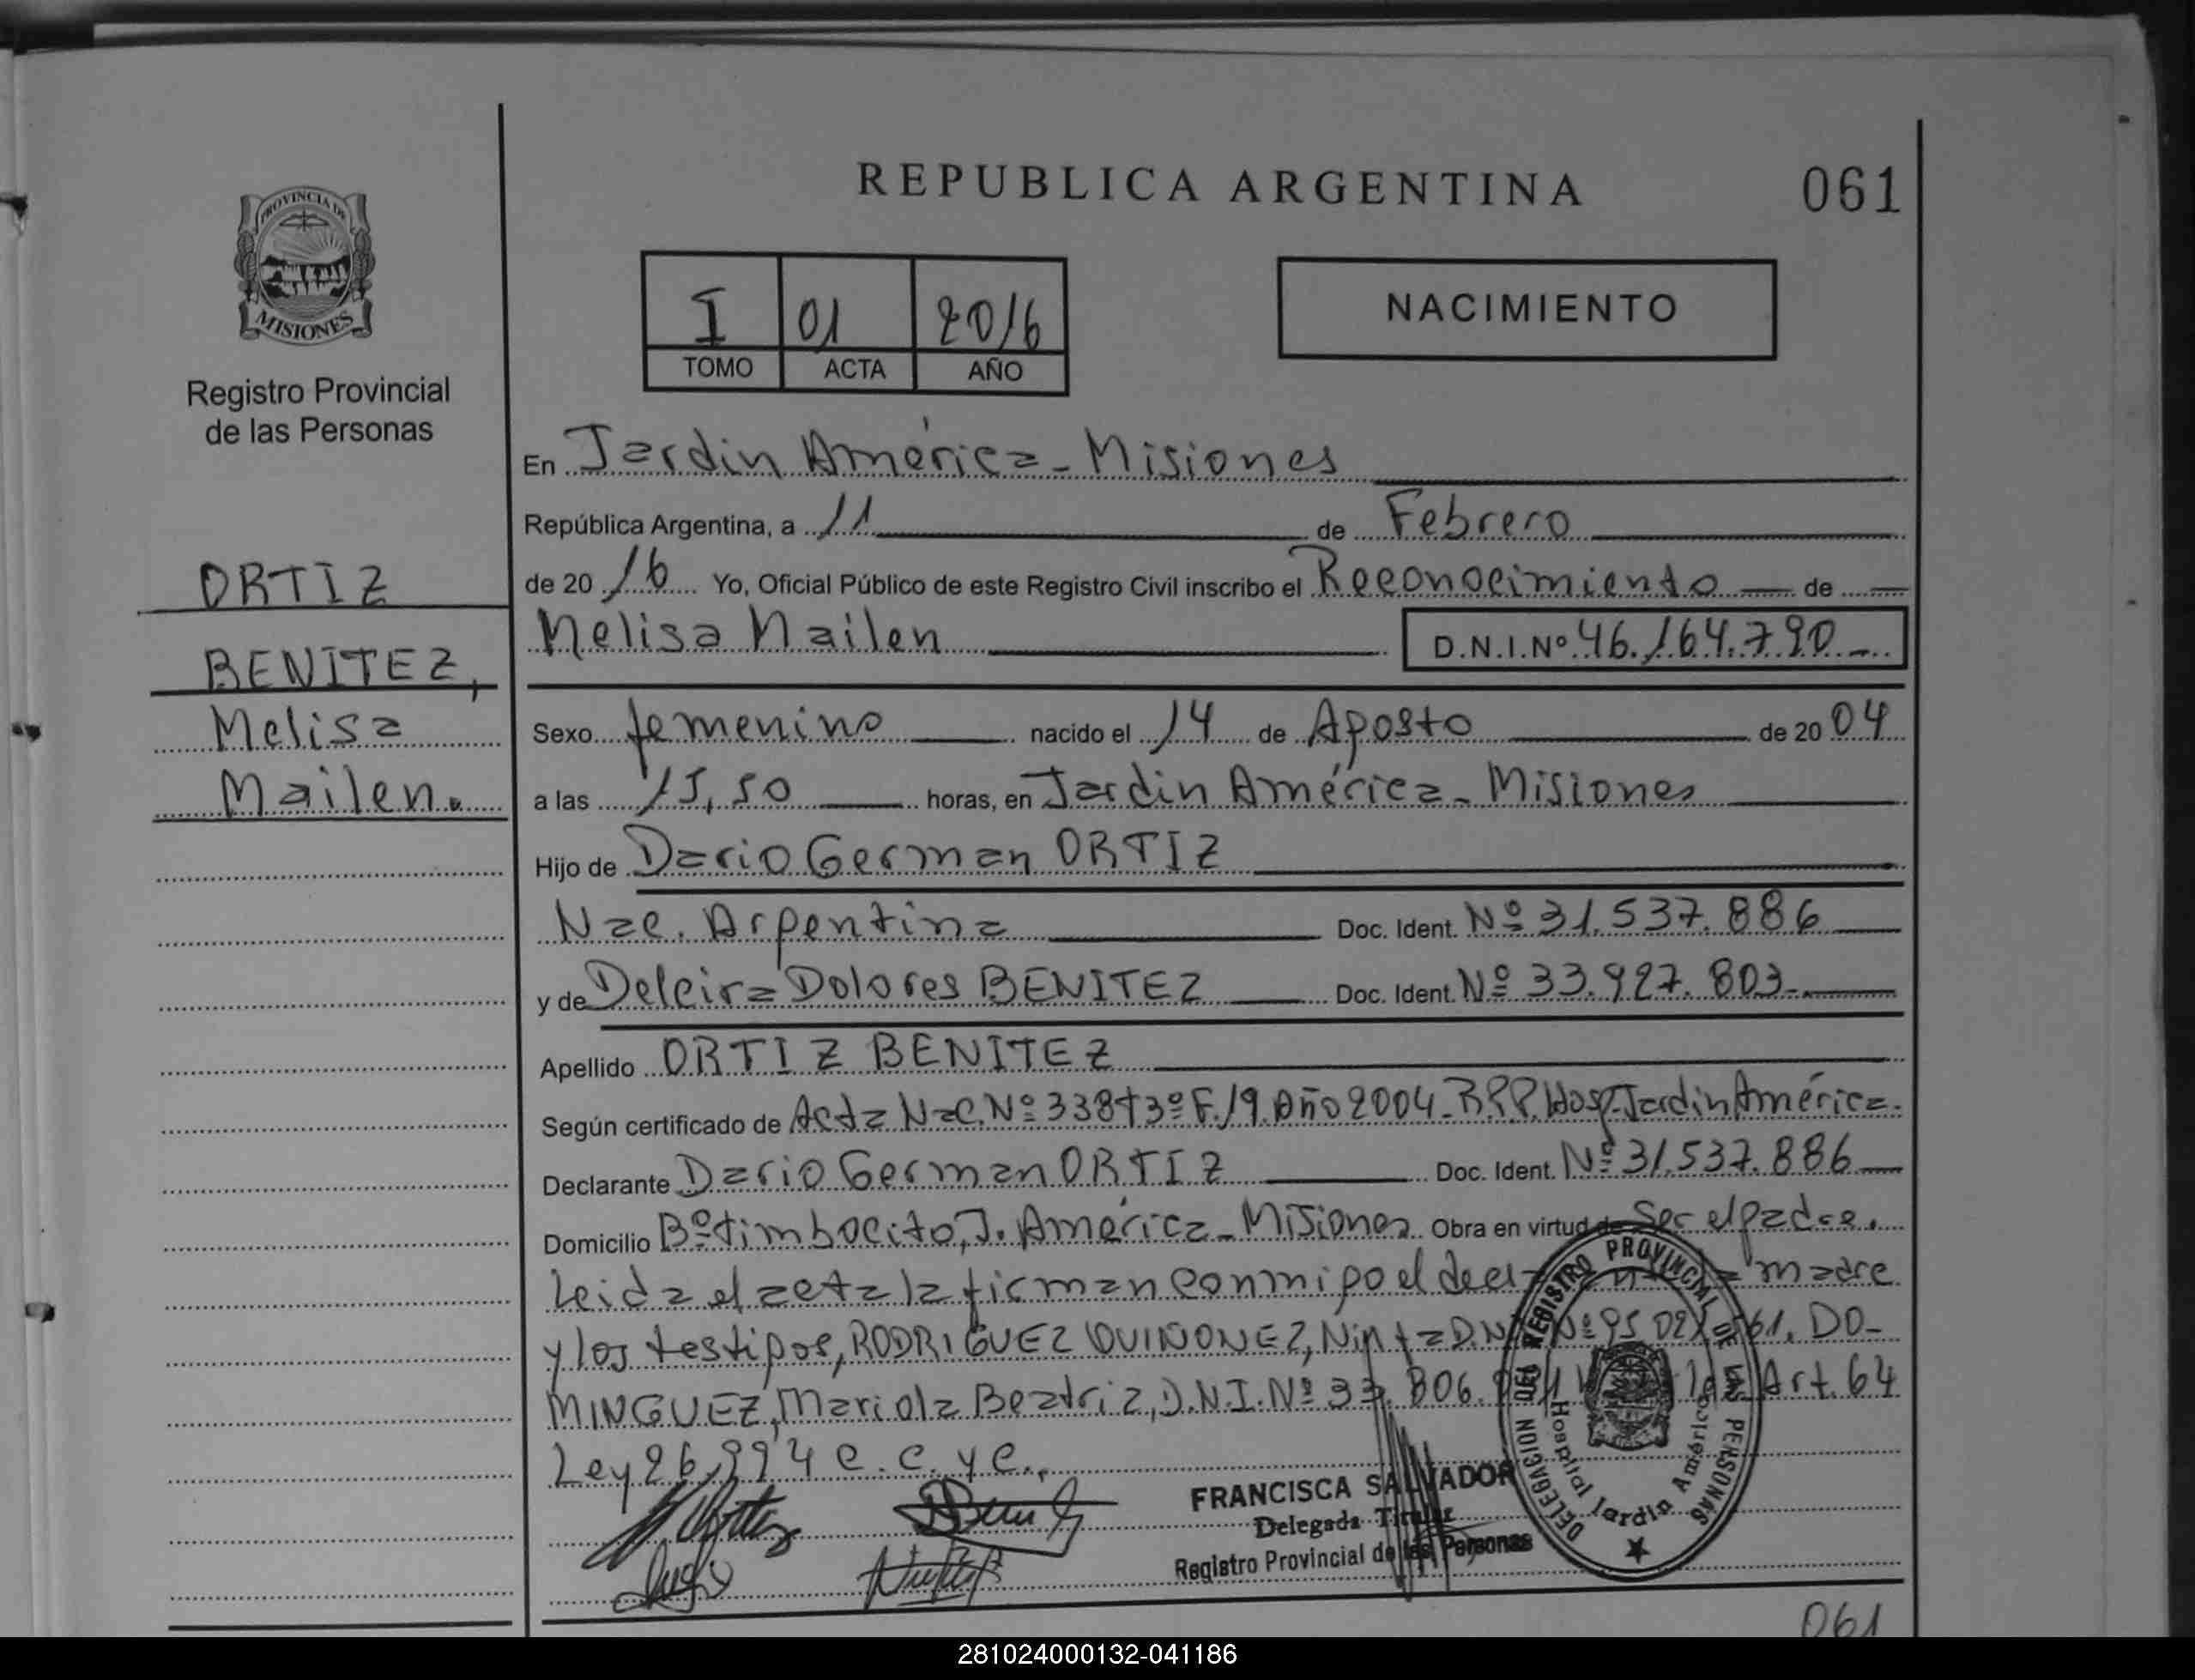 REPUBLICA ARGENTINA
061
PROVINCIA DE
MISIONES
Registro Provincial
de las Personas
I 01 2016
TOMO ACTA AÑO
NACIMIENTO
ORTIZ
BENITEZ,
Melisa
Mailen.
En Jardin América - Misiones
República Argentina, a 11 de Febrero
de 20 16 Yo, Oficial Público de este Registro Civil inscribo el Reconocimiento de
Melisa Mailen D.N.I.Nº 46.164.790
Sexo femenino nacido el 14 de Agosto de 20 04
a las 15,50 horas, en Jardin América - Misiones
Hijo de Dario German ORTIZ
Nac. Argentina Doc. Ident. Nº 31.537.886
y de Delcira Dolores BENITEZ Doc. Ident. Nº 33.927.803
Apellido ORTIZ BENITEZ
Según certificado de Acta Nac. Nº 338 Tº 3º F. 19 Año 2004 - R.P.P. Hosp. Jardin América.
Declarante Dario German ORTIZ Doc. Ident. Nº 31.537.886
Domicilio Bº timbocito, J. América - Misiones Obra en virtud de Ser el padre.
Leida el acta la firman conmigo el madre
y los testigos, RODRIGUEZ QUIÑONEZ, D.N.I. Nº 95 DO-
MINGUEZ, Mariola Beatriz, D.N.I. Nº 33.806. Art. 64
Ley 26.994 C.C. y C.
FRANCISCA SALVADOR
Delegada Titular
Registro Provincial de las Personas
DELEGACION DEL REGISTRO PROVINCIAL DE LAS PERSONAS
Hospital Jardin América
061
281024000132-041186